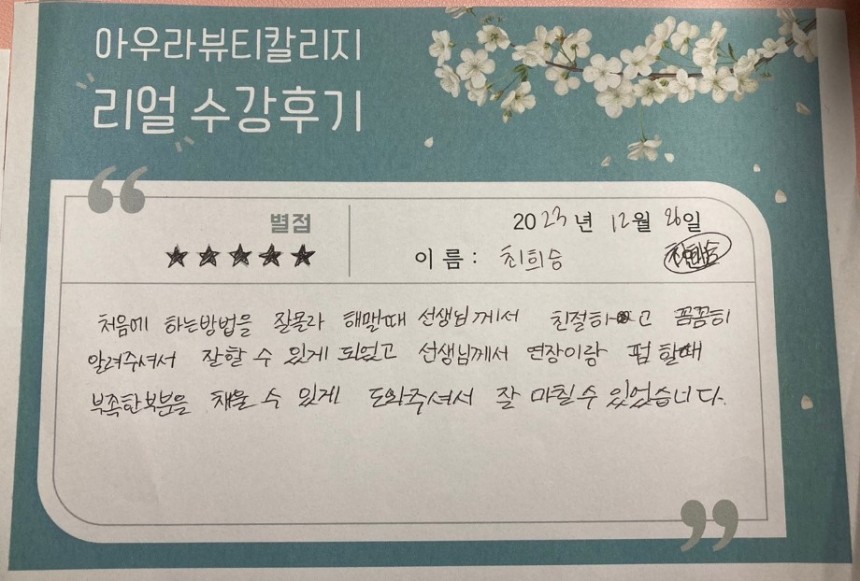 아우라뷰티칼리지
리얼 수강후기
“
별점
★★★★★
2023년 12월 26일
이름: 최희승
처음에 하는방법을 잘몰라 해맬때 선생님께서 친절하고 꼼꼼히
알려주셔서 잘할 수 있게 되었고 선생님께서 연장이랑 펌 할때
부족한부분을 채울 수 있게 도와주셔서 잘 마칠수 있었습니다.
”